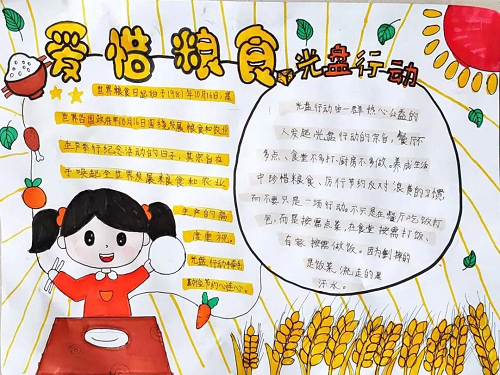 爱惜粮食
光盘行动
世界粮食日起始于1981年10月16日,是
世界各国政府每年10月16日围绕发展粮食和农业
生产举行纪念活动的日子,其宗旨在
于唤起全世界发展粮食和农业
生产的高
度重视。
光盘行动
节约心连心。
光盘行动由一群热心公益的
人发起光盘行动的宗旨,餐厅不
多点、食堂不多打、厨房不多做。养成生活
中珍惜粮食、厉行节约反对浪费的习惯
而不要只是一场行动。不只是在餐厅吃饭打
包,而是按需点菜,在食堂按需打饭、
在家按需做饭。因为剩掉的
是饭菜,流走的是
汗水。